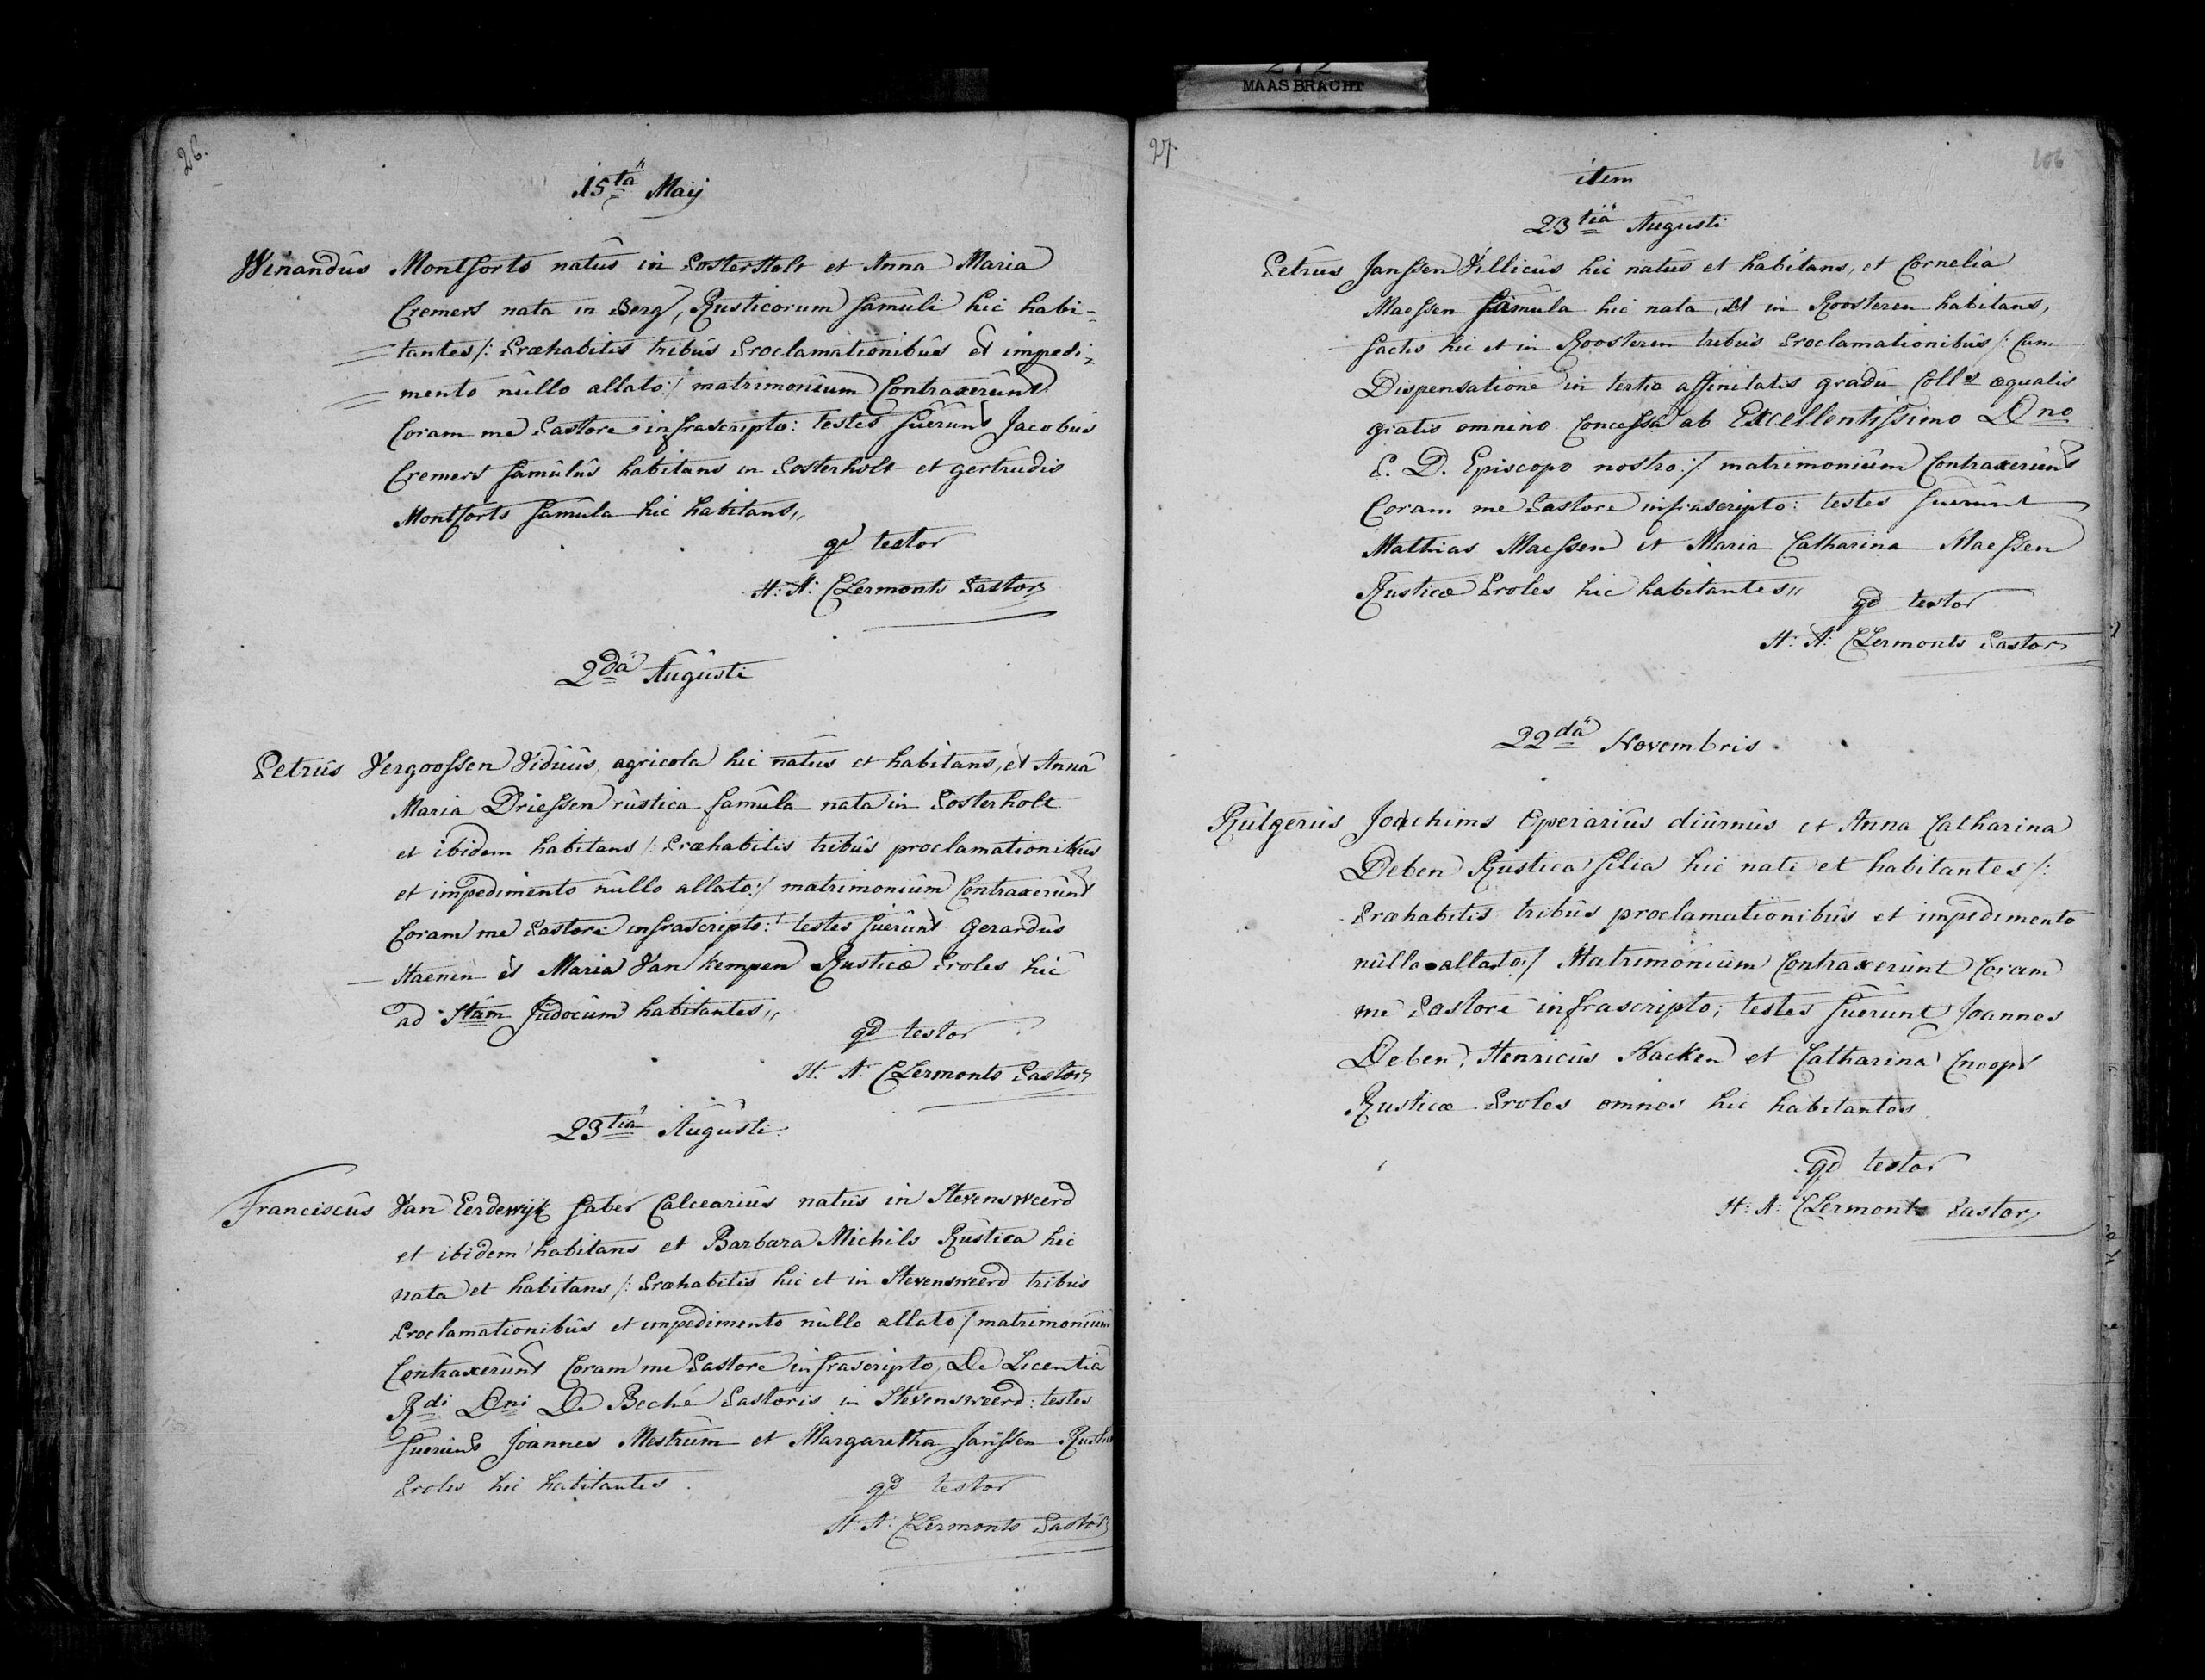 272
MAASBRACHT
26.
15ta Maij
Winandûs Montforts natûs in PosterHolt et Anna Maria
Cremers nata in Berg, Rusticorum famûli hic habi-
tantes /: Præhabitis tribûs Proclamationibûs et impedi-
mento nûllo allato :/ matrimoniûm Contraxerûnt
Coram me Pastore infrascripto: testes fûerûnt Jacobûs
Cremers famûlûs habitans in Posterholt et gertrûdis
Montforts famûla hic habitans,,
qd testor
H: A: CLermonts Pastor
2da Aûgûsti
Petrûs Vergoossen Vidûûs, agricola hic natûs et habitans, et Anna
Maria Driessen rûstica famûla nata in Posterholt
et ibidem habitans /: Præhabitis tribûs proclamationibus
et impedimento nûllo allato :/ matrimoniûm Contraxerûnt
Coram me Pastore infrascripto: testes fûerûnt Gerardûs
Haenen et Maria Van Kempen Rusticæ Proles hic
ad Stûm Jûdocûm habitantes,,
qd testor
H. A: CLermonts Pastor
23tia Aûgûsti
Franciscûs Van Eerdewijk faber Calceariûs natûs in Stevensweerd
et ibidem habitans et Barbara Michils Rûstica hic
nata et habitans /: Præhabitis hic et in Stevensweerd tribûs
Proclamationibûs et impedimento nûllo allato :/ matrimoniûm
Contraxerûnt Coram me Pastore infrascripto, De Licentia
Rdi Dni De Beché Pastoris in Stevensweerd: testes
fuerûnt Joannes Mestrûm et Margaretha Janssen Rusticæ
Proles hic habitantes.
qd testor
H: A: CLermonts Pastor
27.
106
item
23tia Aûgûsti
Petrus Janssen Villicûs hic natûs et habitans, et Cornelia
Maessen famûla hic nata, et in Roosteren habitans,
factis hic et in Roosteren tribûs Proclamationibûs /: Cum
Dispensatione in tertio affinitatis gradû Collis æqualis
gratis omnino Concessa ab Excellentissimo Dno
E. D. Episcopo nostro :/ matrimoniûm Contraxerûnt
Coram me Pastore infrascripto: testes fûerûnt
Mathias Maessen et Maria Catharina Maessen
Rusticæ Proles hic habitantes,,
qd testor
H: A: CLermonts Pastor
22da Novembris.
Rûtgerûs Joachims Operariûs diûrnûs et Anna Catharina
Deben Rustica filia hic nati et habitantes /:
Præhabitis tribûs proclamationibûs et impedimento
nûllo allato :/ Matrimoniûm Contraxerûnt Coram
me Pastore infrascripto; testes fûerunt Joannes
Deben, Henricûs Hacken et Catharina Cnoops
Rusticæ Proles omnes hic habitantes
qd testor
H: A: CLermonts Pastor